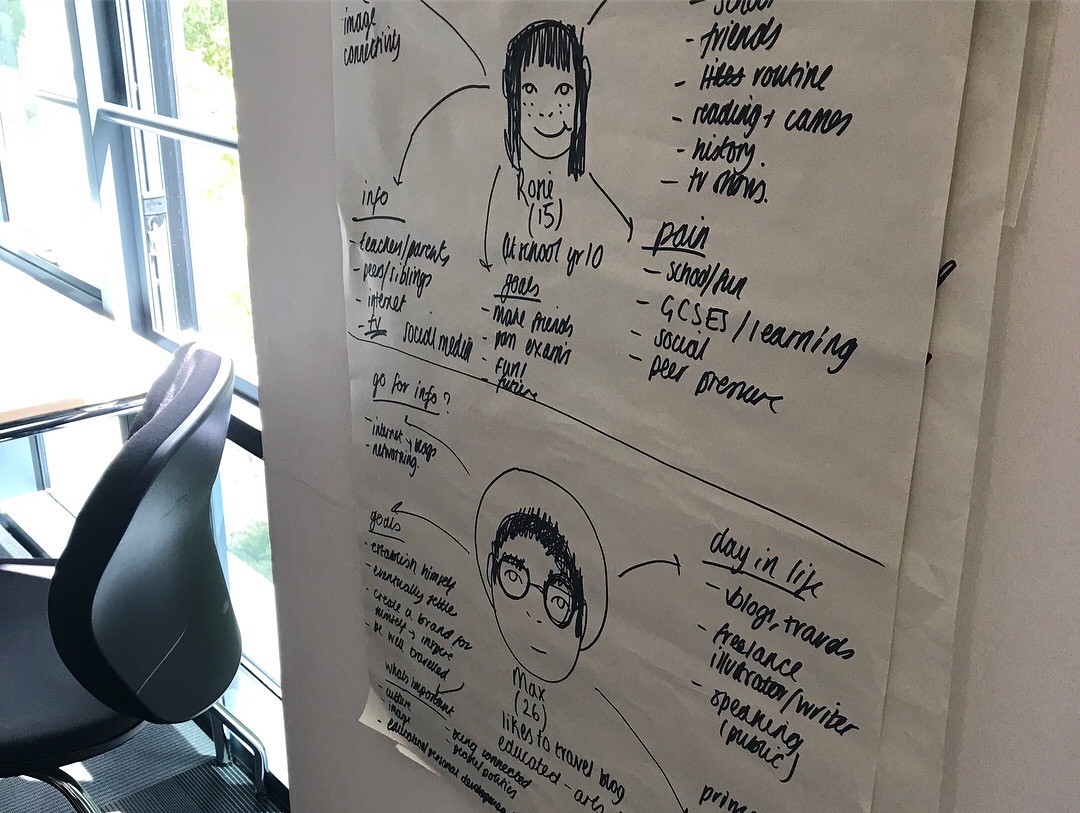 image
connectivity
- school
- friends
- routine
- reading + games
- history.
- tv shows.
(15)
at school yr 10
info
- teachers/parents
- peers/siblings
- internet
- tv
social media
goals
- make friends
- pass exams
- fun!
- future
pain
- school/fun
- GCSES/learning
- social
- peer pressure
go for info?
- internet + blogs
- networking.
goals
- establish himself
- eventually settle
- create a brand for
himself + inspire
- be well travelled
whats important
- culture
- image
- educational personal development
- being connected
- people/politics
Max
(26)
likes to travel blog
educated - arts
day in life
- blogs, travels
- freelance
illustrator/writer
- speaking
(public)